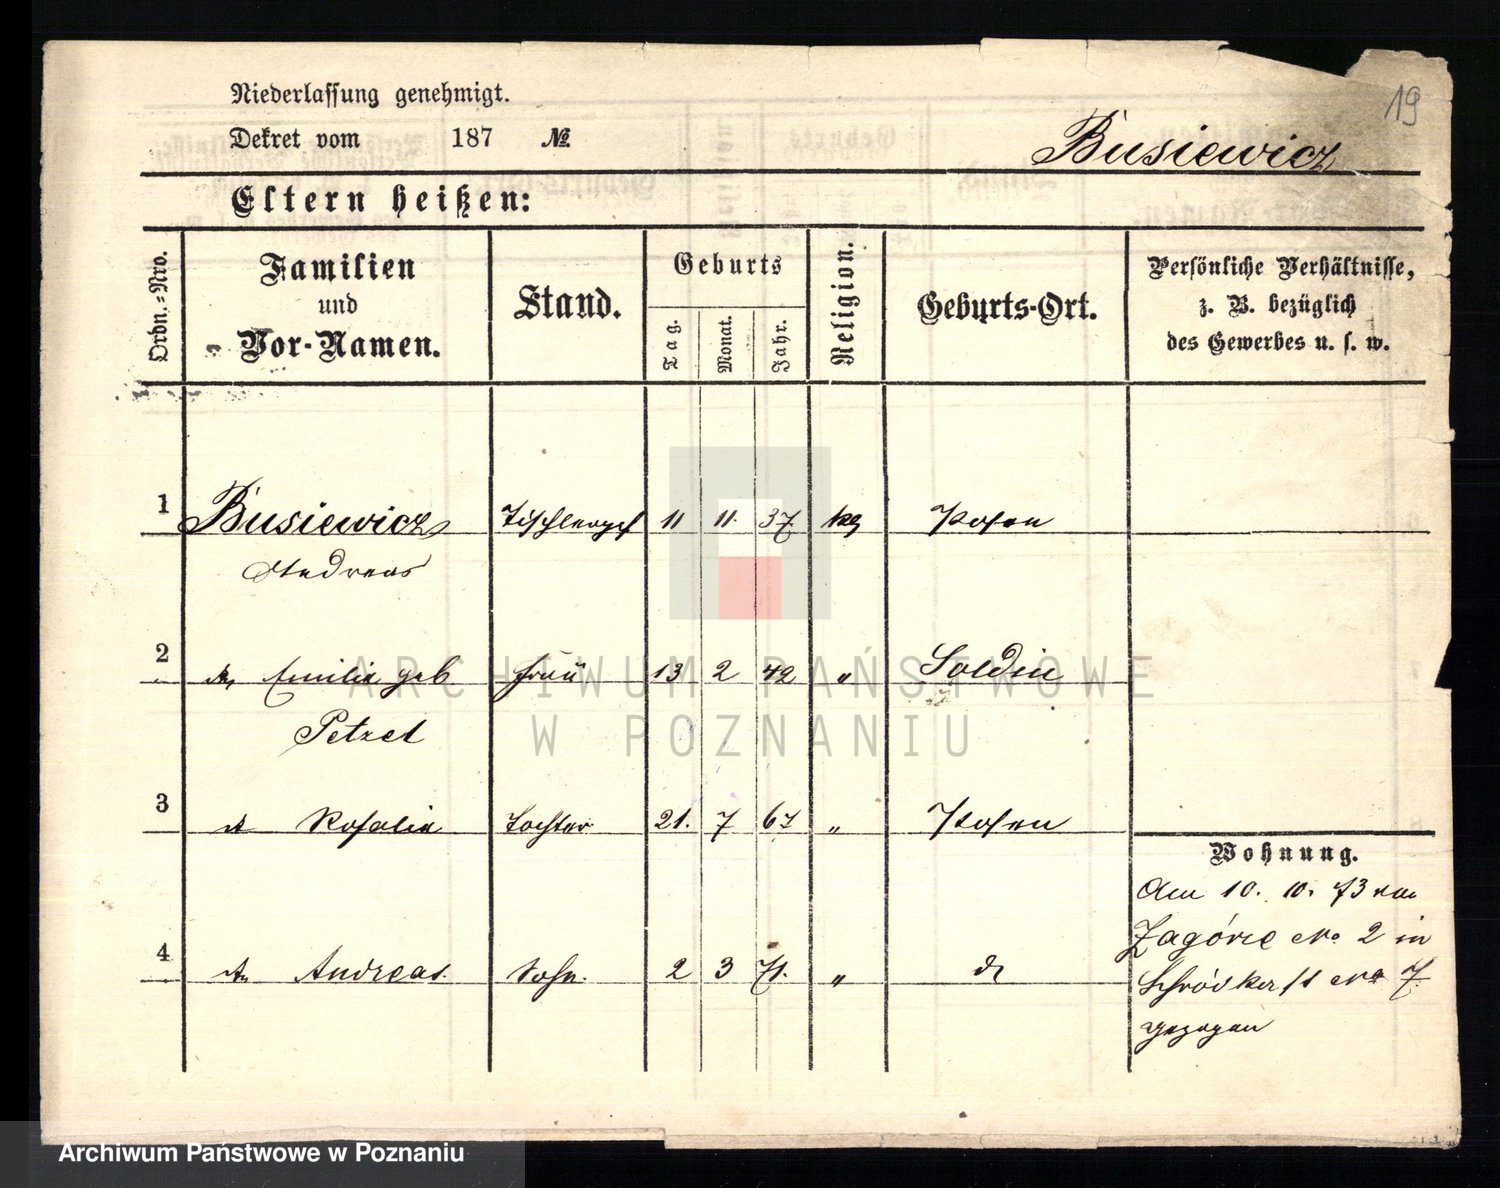 19
Niederlassung genehmigt.
Dekret vom 187 №
Busiewicz
Eltern heißen:
Ordn.-Nro.
Familien und Vor-Namen.
Stand.
Geburts
Tag.
Monat.
Jahr.
Religion.
Geburts-Ort.
Persönliche Verhältnisse,
z. B. bezüglich
des Gewerbes u. s. w.
1 Busiewicz Tischlerges 11 11. 37. kg Posen
Andreas
2 Emilie geb Frau 13 2 42 " Soldin
Petzel
3 Rosalie Tochter 21. 7 67 " Posen
4 Andreas. Sohn. 2 3 71. "
Wohnung.
Am 10. 10. 73 von
Zagórze No 2 in
Schródka st No 7.
gezogen
ARCHIWUM PAŃSTWOWE
W POZNANIU
Archiwum Państwowe w Poznaniu